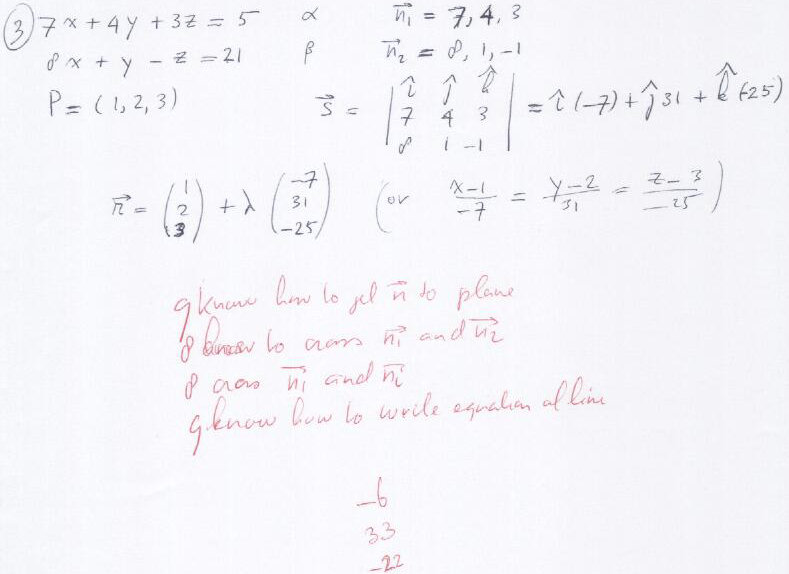 ③ 7x + 4y + 3z = 5 α n⃗₁ = 7, 4, 3
8x + y - z = 21 β n⃗₂ = 8, 1, -1
P = (1, 2, 3) s⃗ = | î ĵ k̂ | = î(-7) + ĵ 31 + k̂(-25)
7 4 3
8 1 -1
r⃗ = (1 2 3) + λ (-7 31 -25) (or x-1/-7 = y-2/31 = z-3/-25)
9 know how to get n⃗ to plane
8 know to cross n⃗₁ and n⃗₂
8 cross n⃗₁ and n⃗₂
9 know how to write equation of line
-6
33
-22